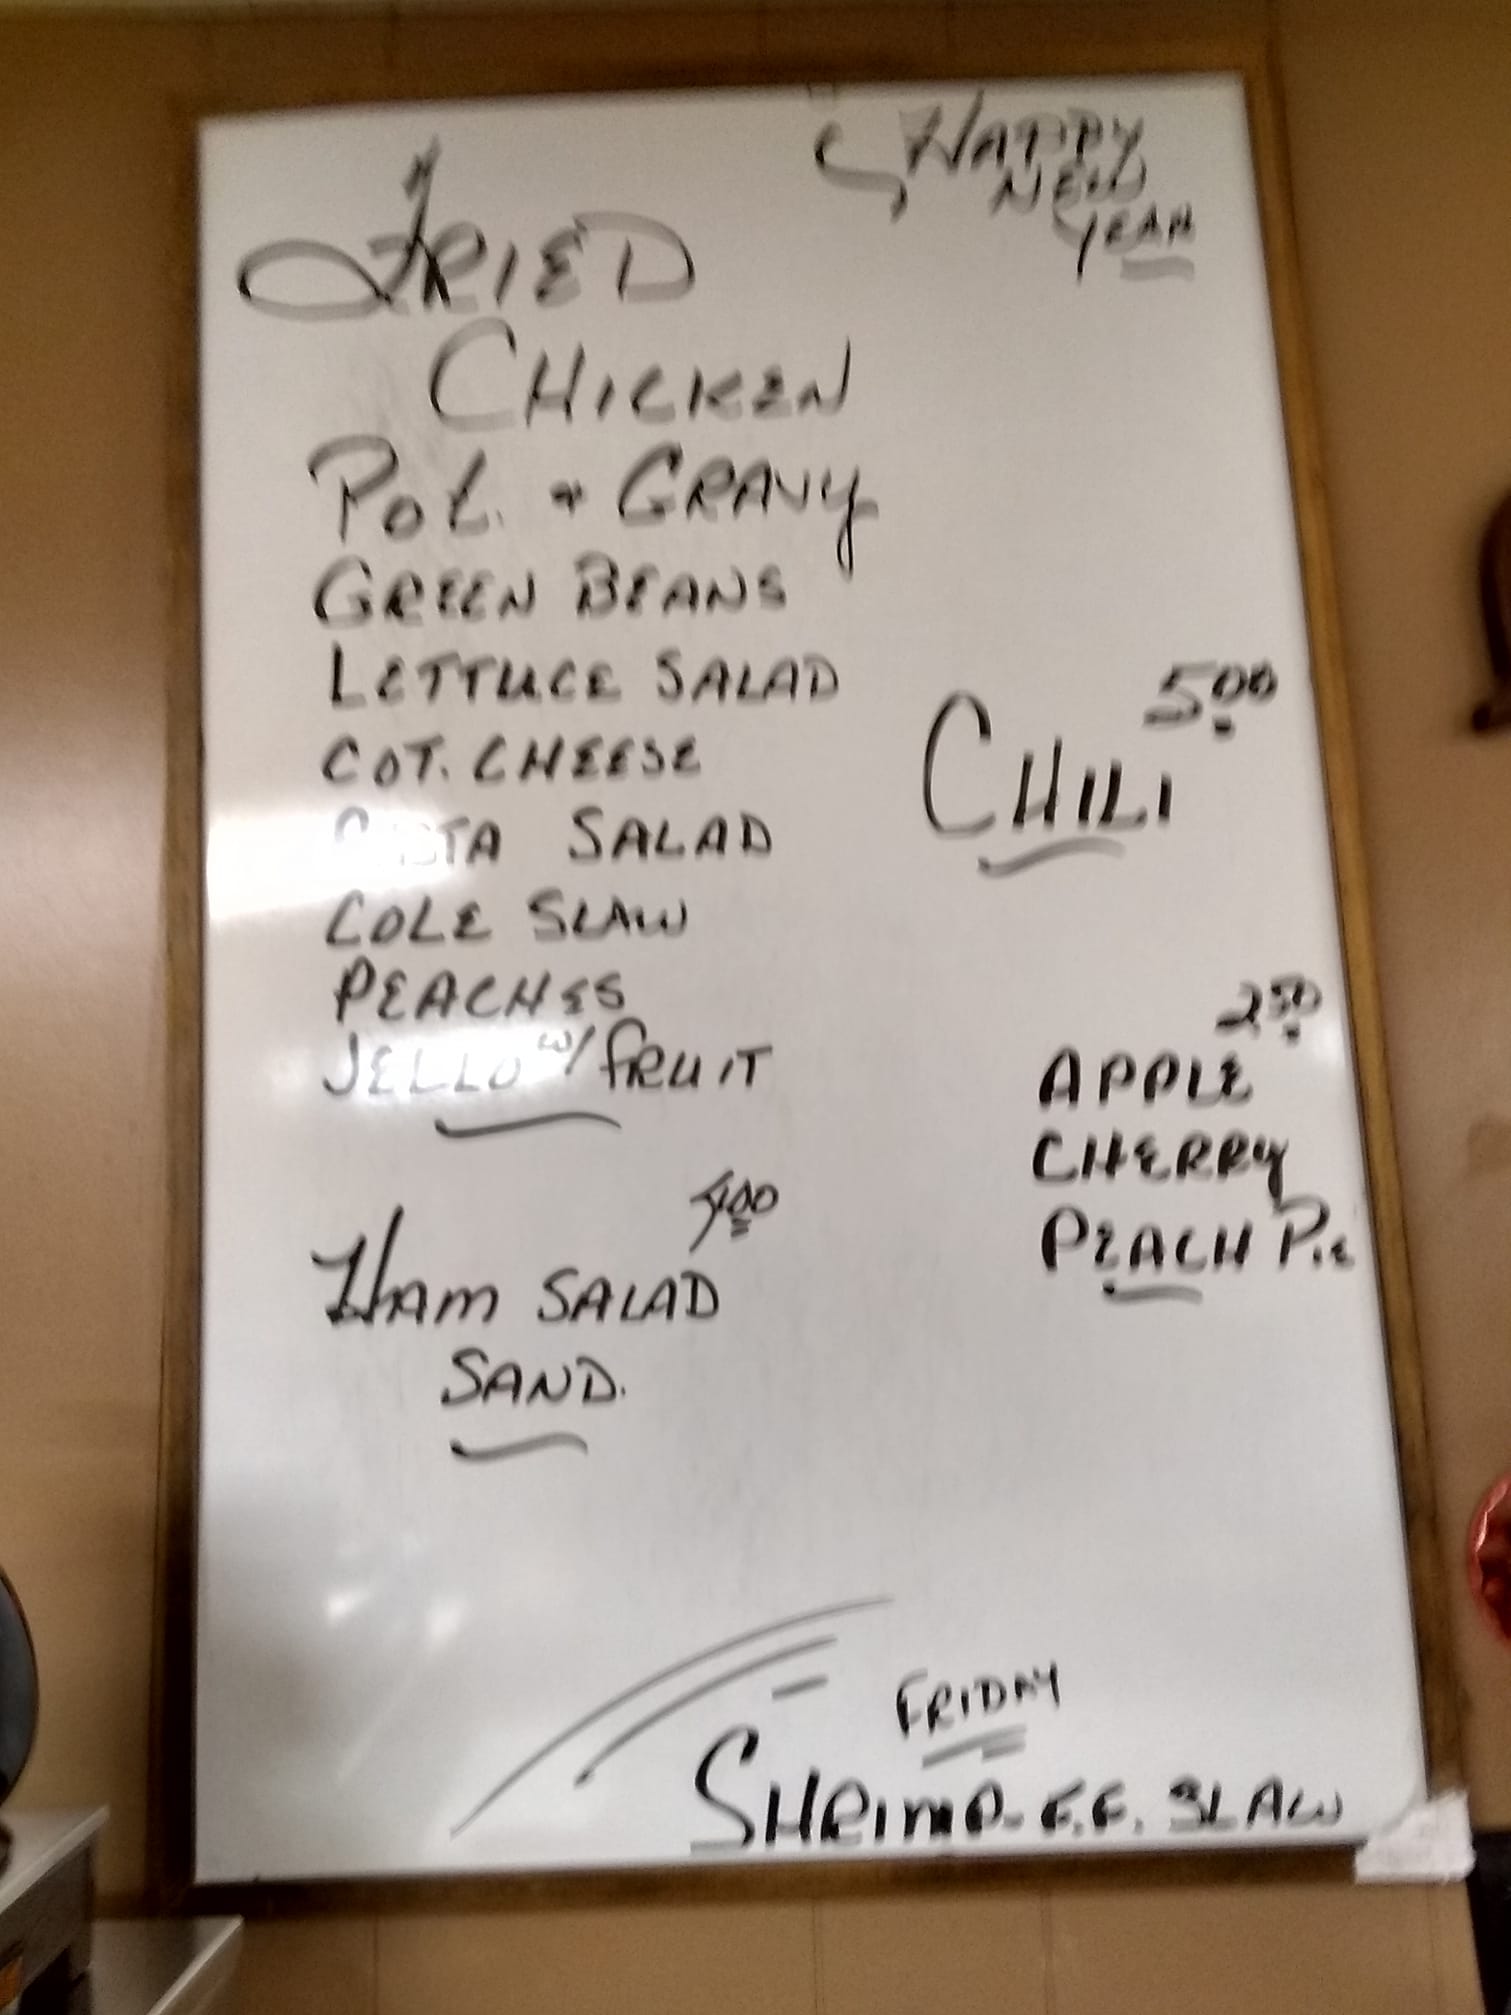 Happy
New
Year
Fried
Chicken
Pot. + Gravy
Green Beans
Lettuce Salad
Cot. Cheese
Pasta Salad
Cole Slaw
Peaches
Jello w/ Fruit
5.00
Chili
2.50
Apple
Cherry
Peach Pie
4.00
Ham Salad
Sand.
Friday
Shrimp - F.F. Slaw